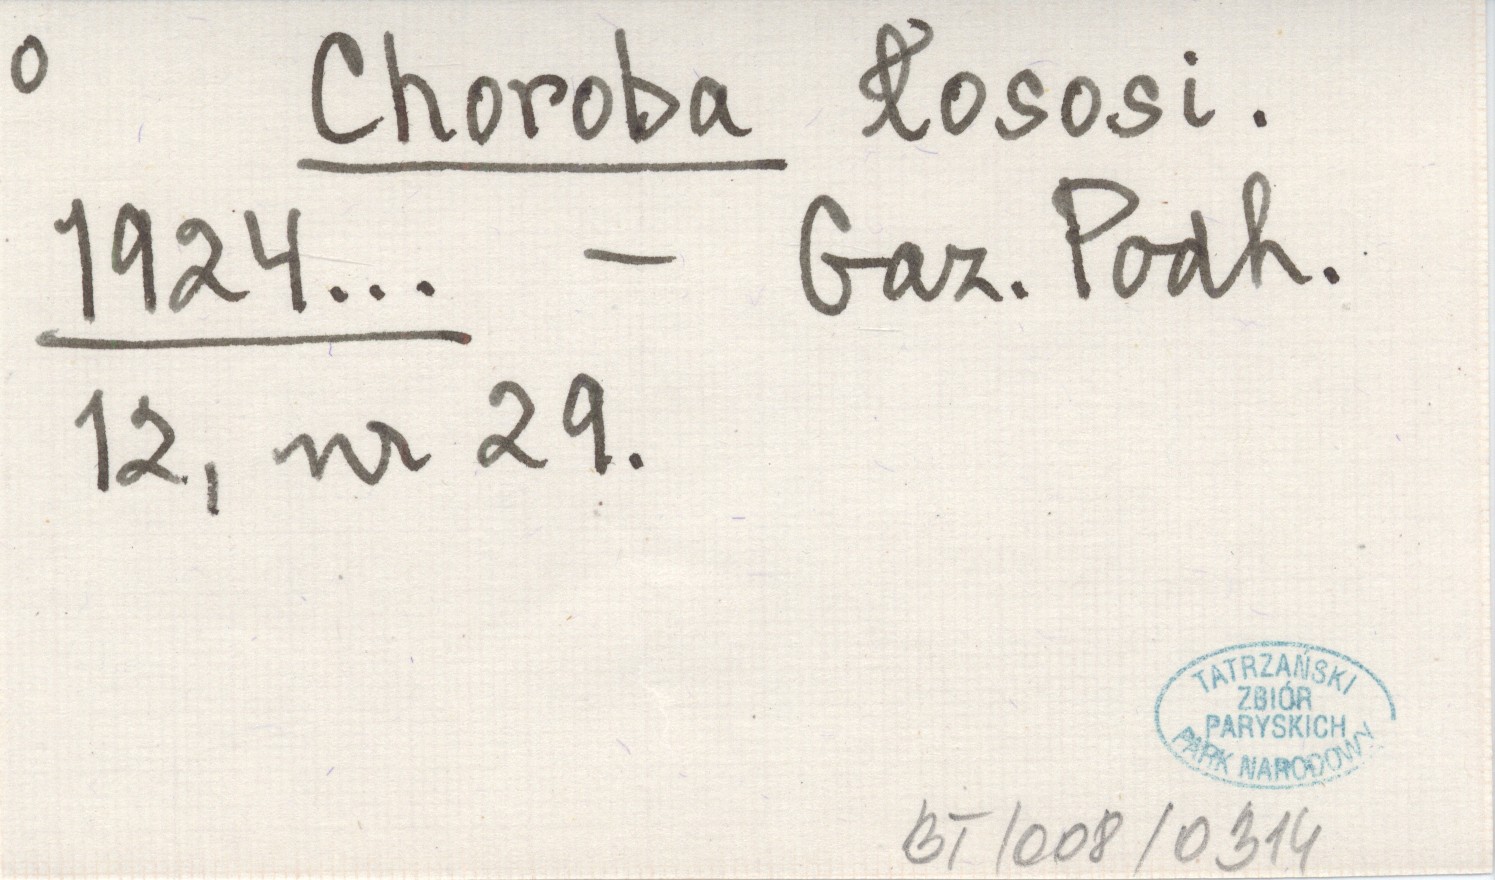 o Choroba łososi.
1924... — Gaz. Podh.
12, nr 29.
TATRZAŃSKI
ZBIÓR
PARYSKICH
PARK NARODOWY
BT/008/0314